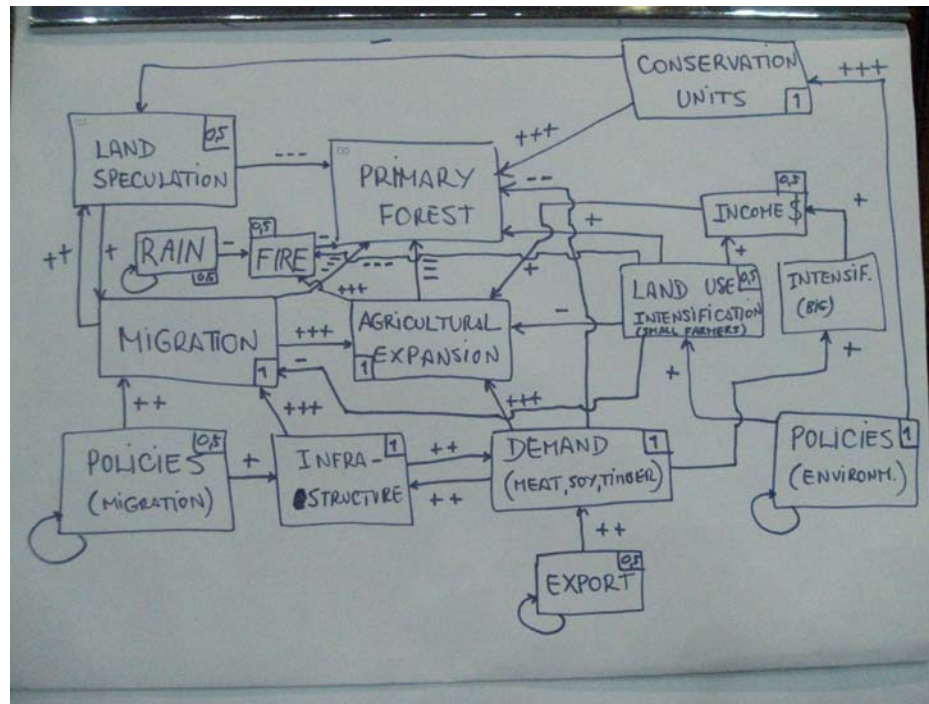 -
CONSERVATION
UNITS
1
+++
LAND
SPECULATION
0,5
---
PRIMARY
FOREST
+++
--
0,5
INCOME $
+
++
+
RAIN
0,5
-
0,5
FIRE
-
---
+++
+
+
+
LAND USE
INTENSIFICATION
(SMALL FARMERS)
0,5
INTENSIF.
(BIG)
MIGRATION
1
+++
-
AGRICULTURAL
EXPANSION
1
---
-
+
+
++
+++
+++
POLICIES
(MIGRATION)
0,5
+
INFRA-
STRUCTURE
1
++
++
DEMAND
(MEAT, SOY, TIMBER)
1
POLICIES
(ENVIRONM.)
1
++
EXPORT
0,5